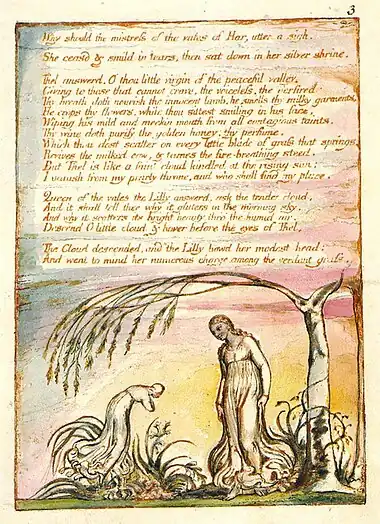 3
Why should the mistress of the vales of Har, utter a sigh.
She ceasd & smild in tears, then sat down in her silver shrine.
Thel answerd, O thou little virgin of the peaceful valley.
Giving to those that cannot crave, the voiceless, the o'ertired
Thy breath doth nourish the innocent lamb, he smells thy milky garments,
He crops thy flowers, while thou sittest smiling in his face,
Wiping his mild and meekin mouth from all contagious taints.
Thy wine doth purify the golden honey, thy perfume,
Which thou dost scatter on every little blade of grass that springs
Revives the milked cow, & tames the fire-breathing steed.
But Thel is like a faint cloud kindled at the rising sun:
I vanish from my pearly throne, and who shall find my place.
Queen of the vales the Lilly answerd, ask the tender cloud,
And it shall tell thee why it glitters in the morning sky,
And why it scatters its bright beauty thro the humid air.
Descend O little cloud & hover before the eyes of Thel.
The Cloud descended, and the Lilly bowd her modest head:
And went to mind her numerous charge among the verdant grass.